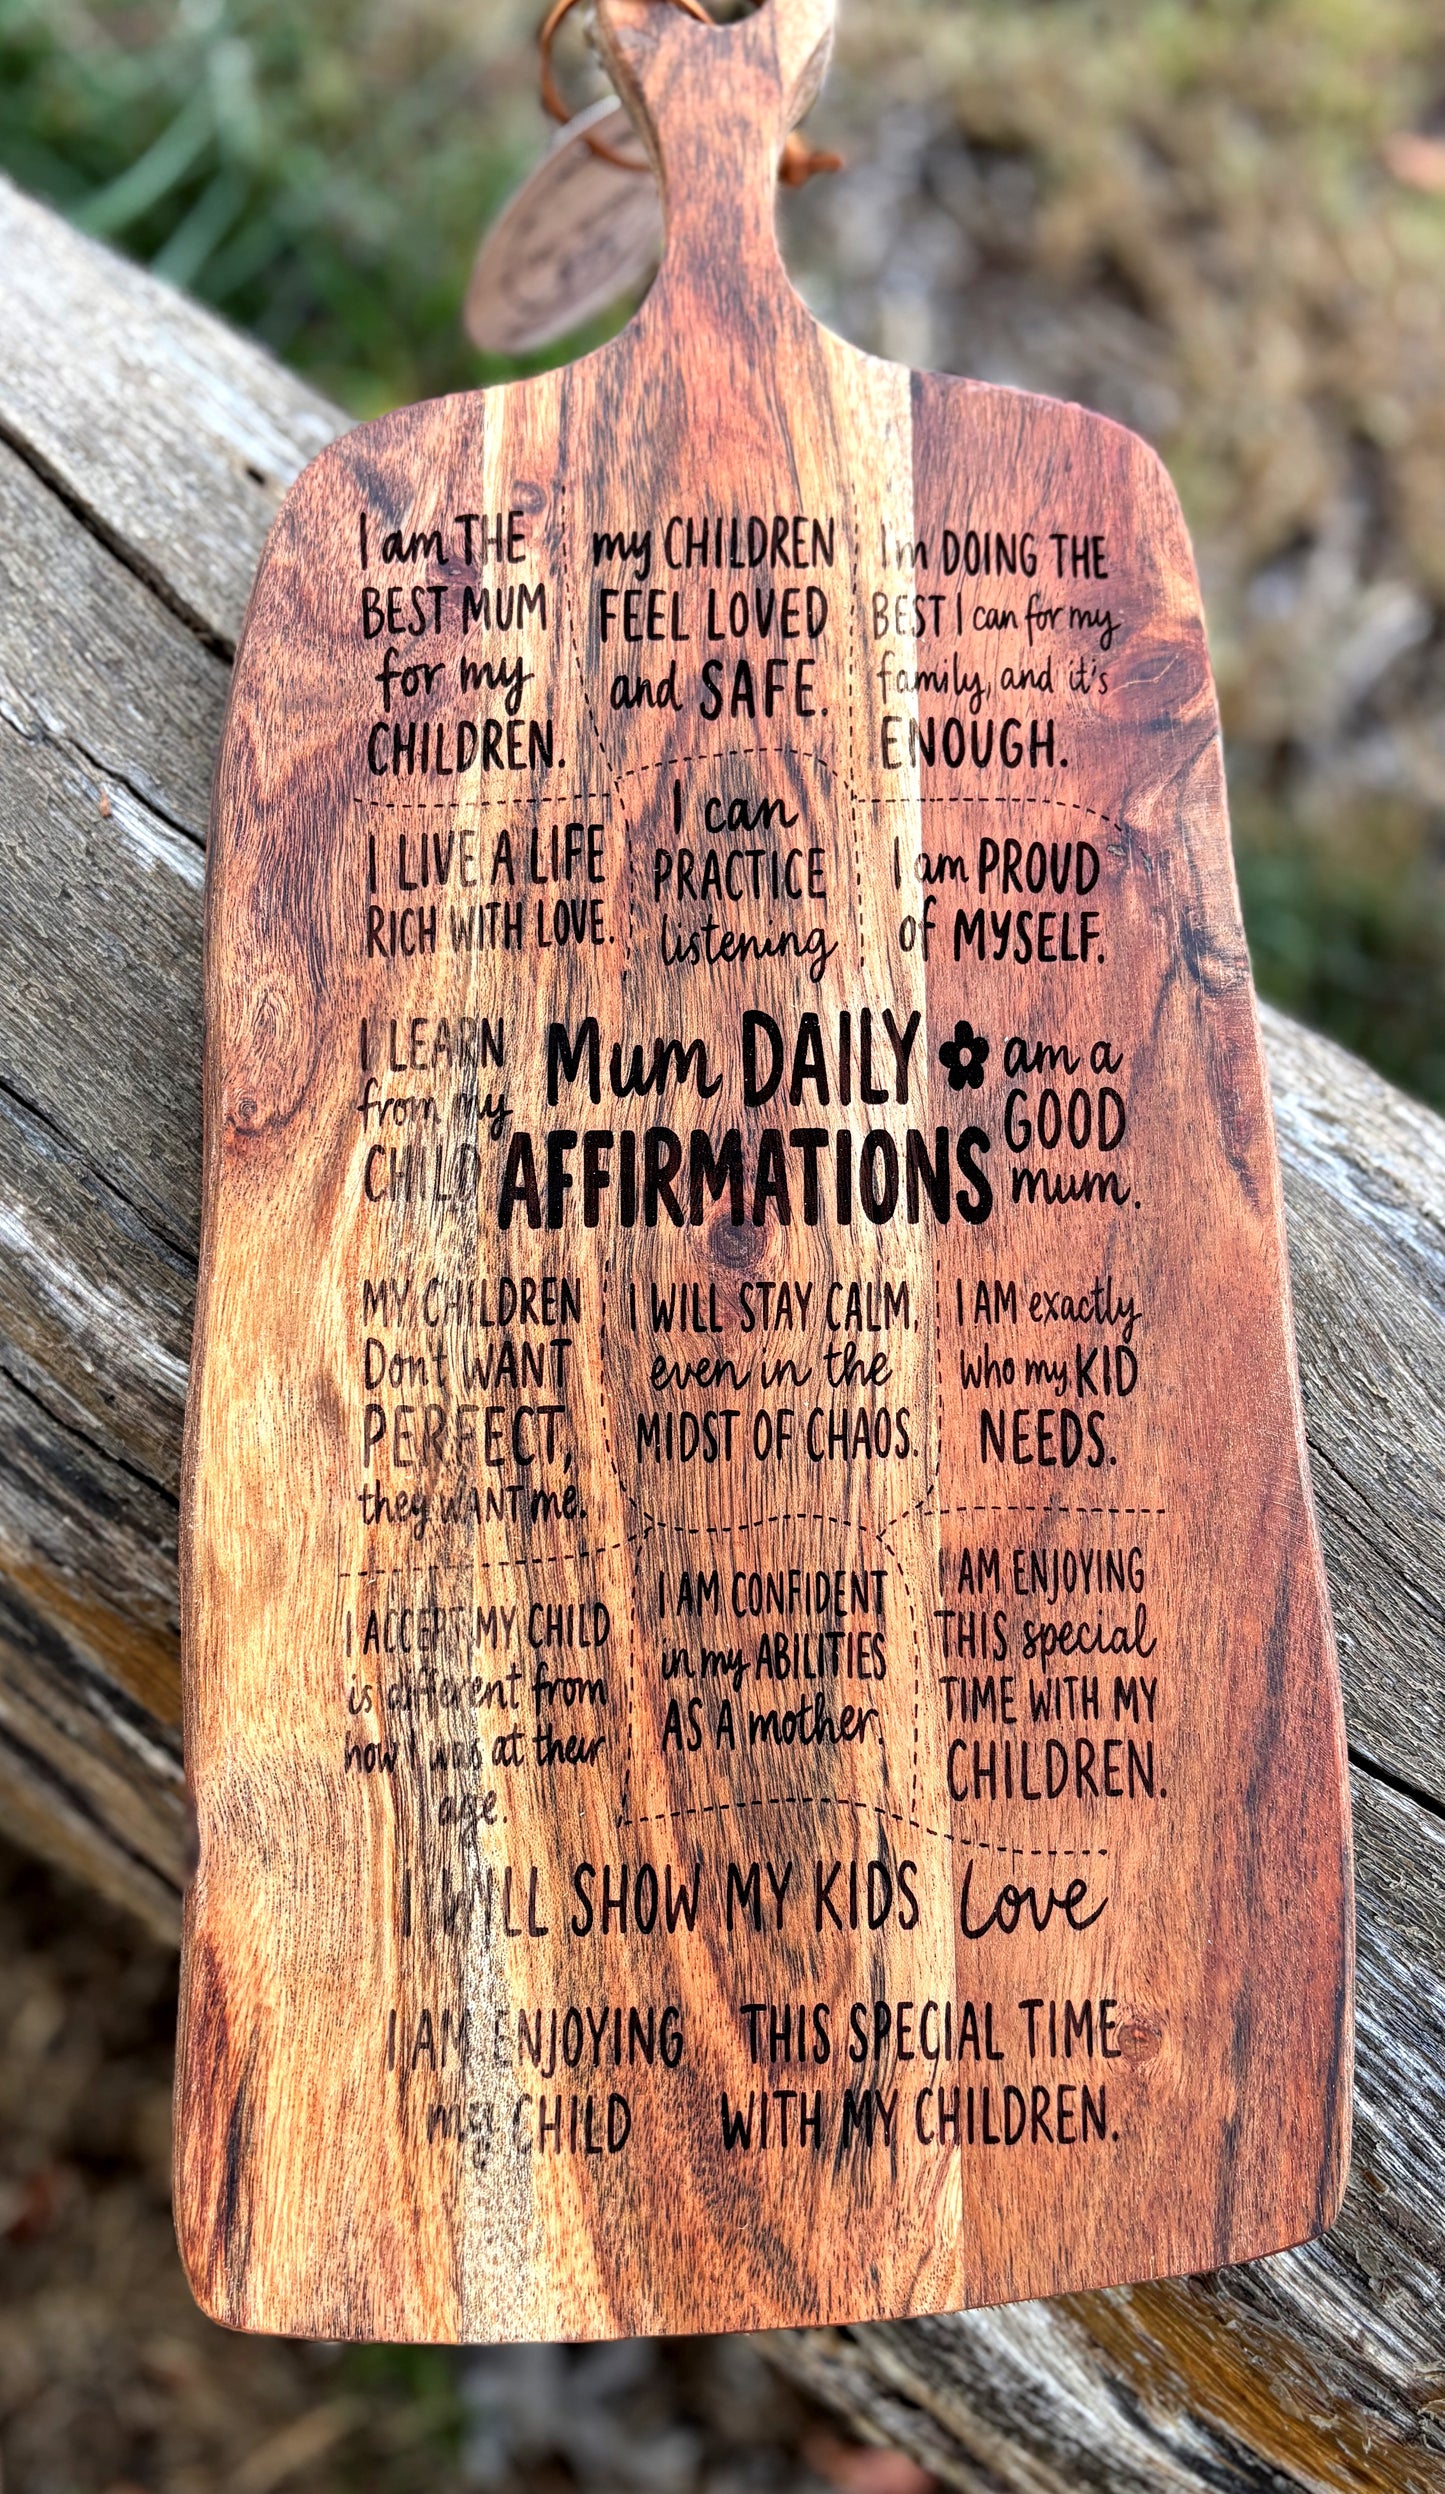 I am THE
BEST MUM
for my
CHILDREN.
my CHILDREN
FEEL LOVED
and SAFE.
I'm DOING THE
BEST I can for my
family, and it's
ENOUGH.
I LIVE A LIFE
RICH WITH LOVE.
I can
PRACTICE
listening
I am PROUD
of MYSELF.
I LEARN
from my
CHILD
Mum DAILY
AFFIRMATIONS
am a
GOOD
mum.
MY CHILDREN
Don't WANT
PERFECT,
they WANT me.
I WILL STAY CALM,
even in the
MIDST OF CHAOS.
I AM exactly
who my KID
NEEDS.
I ACCEPT MY CHILD
is different from
how I was at their
age.
I AM CONFIDENT
in my ABILITIES
AS A mother.
I AM ENJOYING
THIS special
TIME WITH MY
CHILDREN.
I WILL SHOW MY KIDS love
I AM ENJOYING
CHILD
THIS SPECIAL TIME
WITH MY CHILDREN.